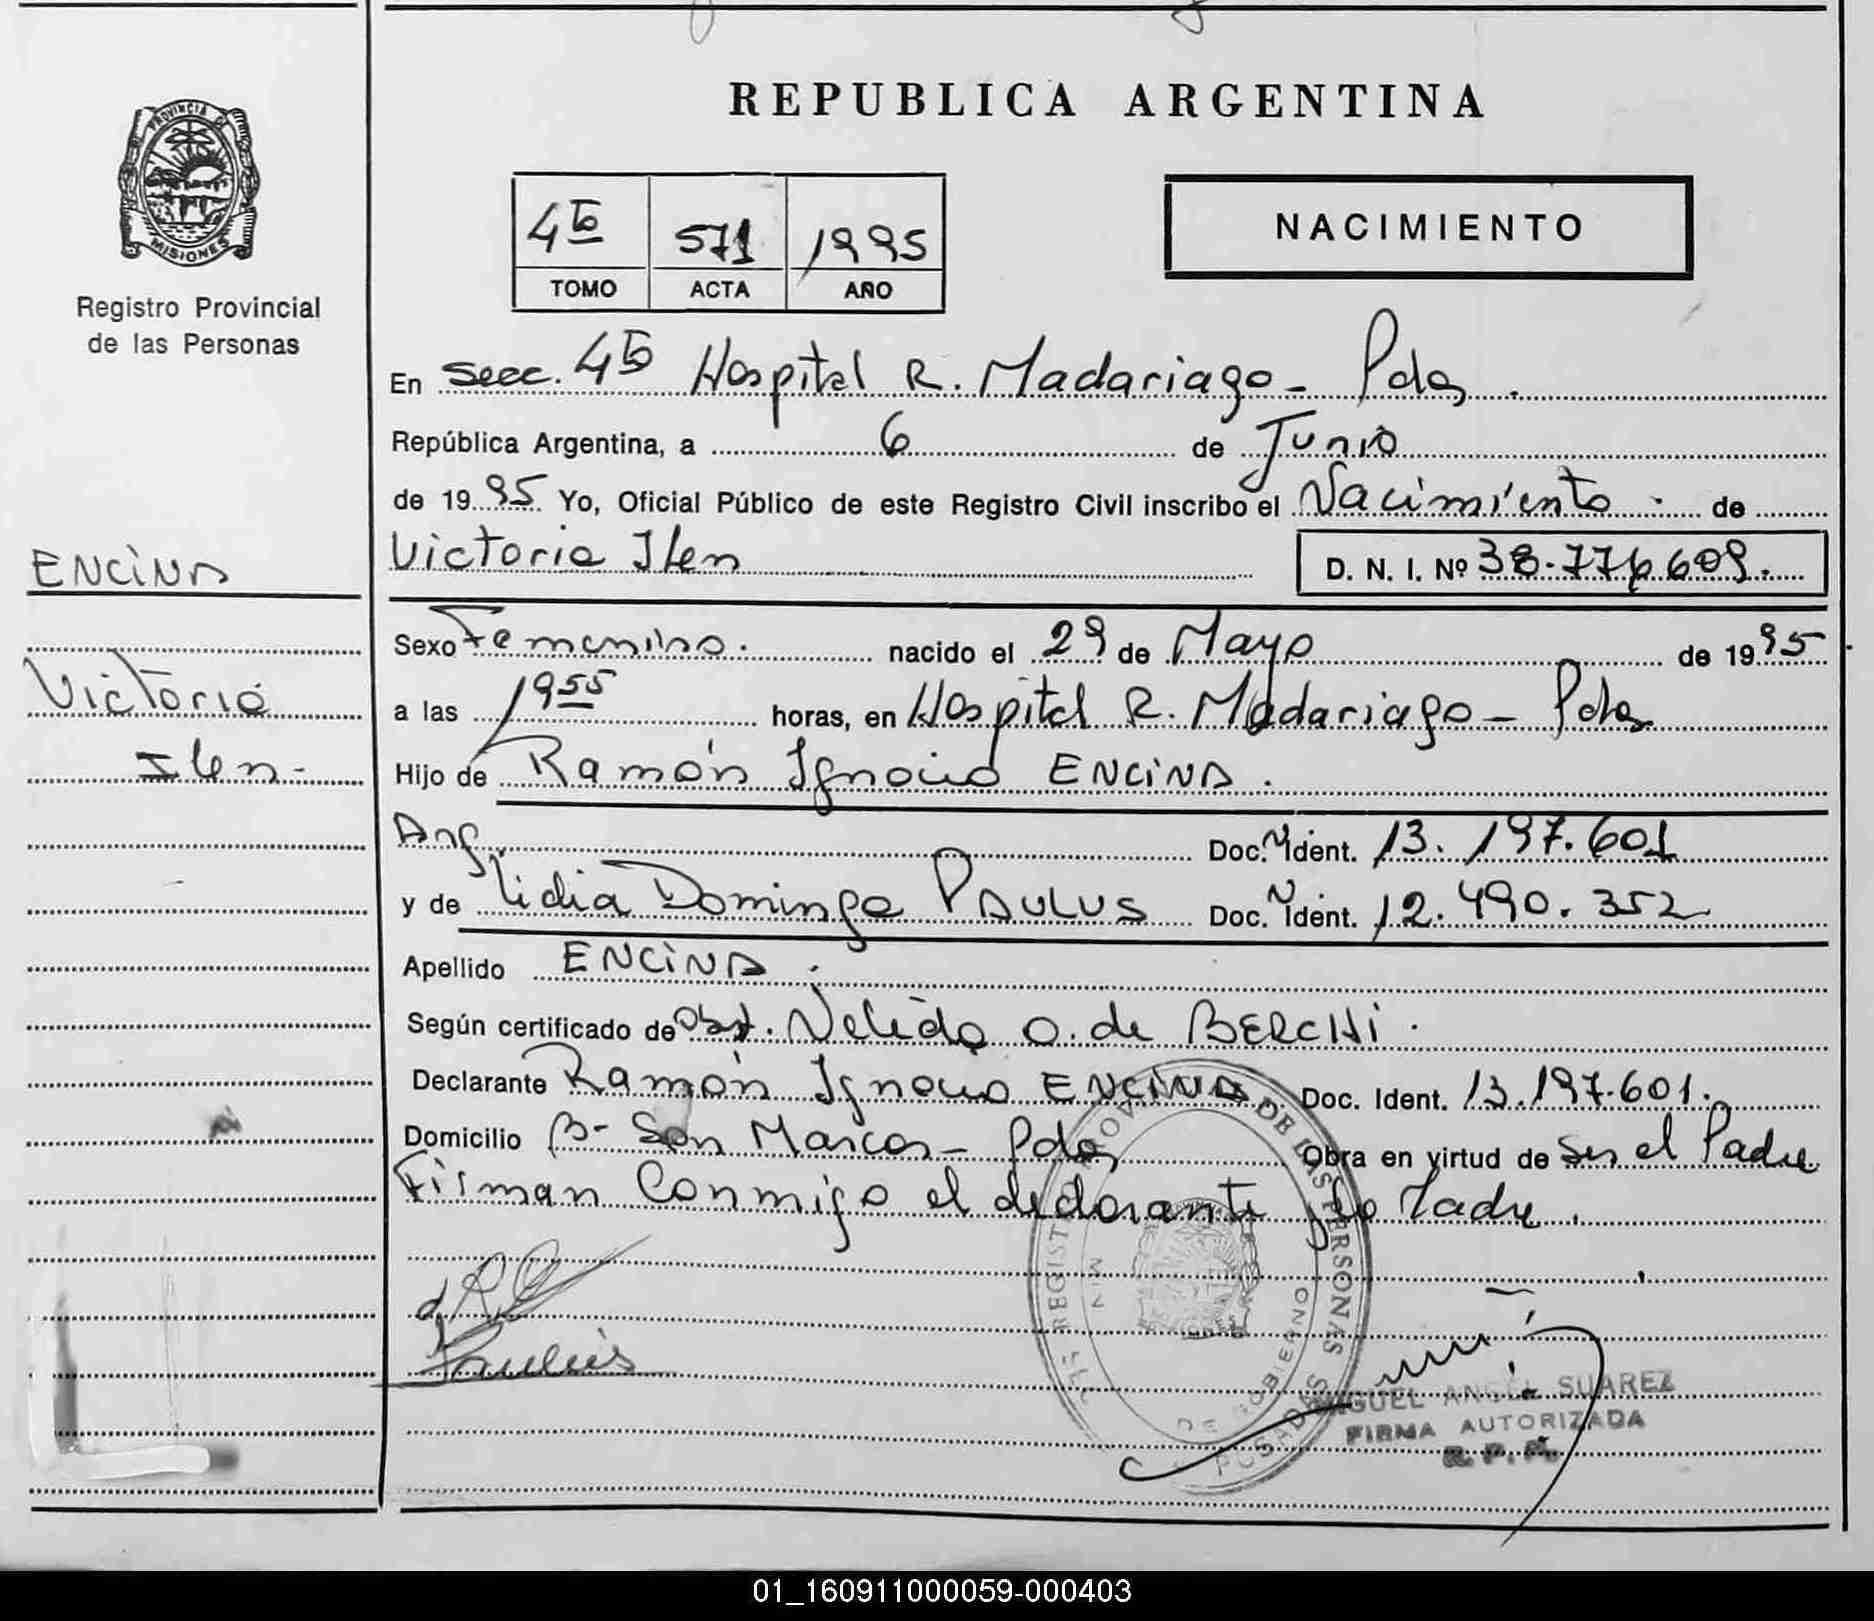 REPUBLICA ARGENTINA
PROVINCIA DE
MISIONES
Registro Provincial
de las Personas
4ta 571 1995
TOMO ACTA AÑO
NACIMIENTO
En secc. 4ta Hospital R. Madariaga - Pdas.
República Argentina, a 6 de Junio
de 1995 Yo, Oficial Público de este Registro Civil inscribo el Nacimiento de
Victoria Ilen D. N. I. Nº 38.776.609.
ENCINA
Victoria
Ilen-
Sexo Femenino. nacido el 29 de Mayo de 1995
a las 1955 horas, en Hospital R. Madariaga - Pdas
Hijo de Ramón Ignacio ENCINA.
Arg. Doc. N Ident. 13.197.601
y de Lidia Dominga PAULUS Doc. N Ident. 12.490.352
Apellido ENCINA.
Según certificado de Obst. Nelida O. de BERCHI.
Declarante Ramón Ignacio ENCINA Doc. Ident. 13.197.601.
Domicilio B- San Marcos - Pdas Obra en virtud de ser el Padre
Firman Conmigo el declarante y la Madre.
Paulus
DE LAS PERSONAS
MIN DE GOBIERNO
POSADAS
MIGUEL ANGEL SUAREZ
FIRMA AUTORIZADA
R. P. P.
01_160911000059-000403